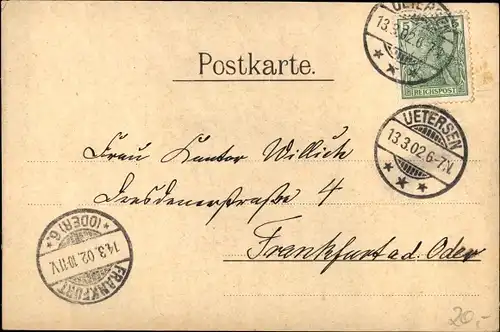 UETERSEN
13.3.02.6-7.
5
REICHSPOST
Postkarte.
UETERSEN
13.3.02.6-7.V.
Frau Kantor Willich
Dresdenerstraße 4
Frankfurt a. d. Oder
FRANKFURT
14.3.02.10-11V.
*(ODER) 6*
20,-